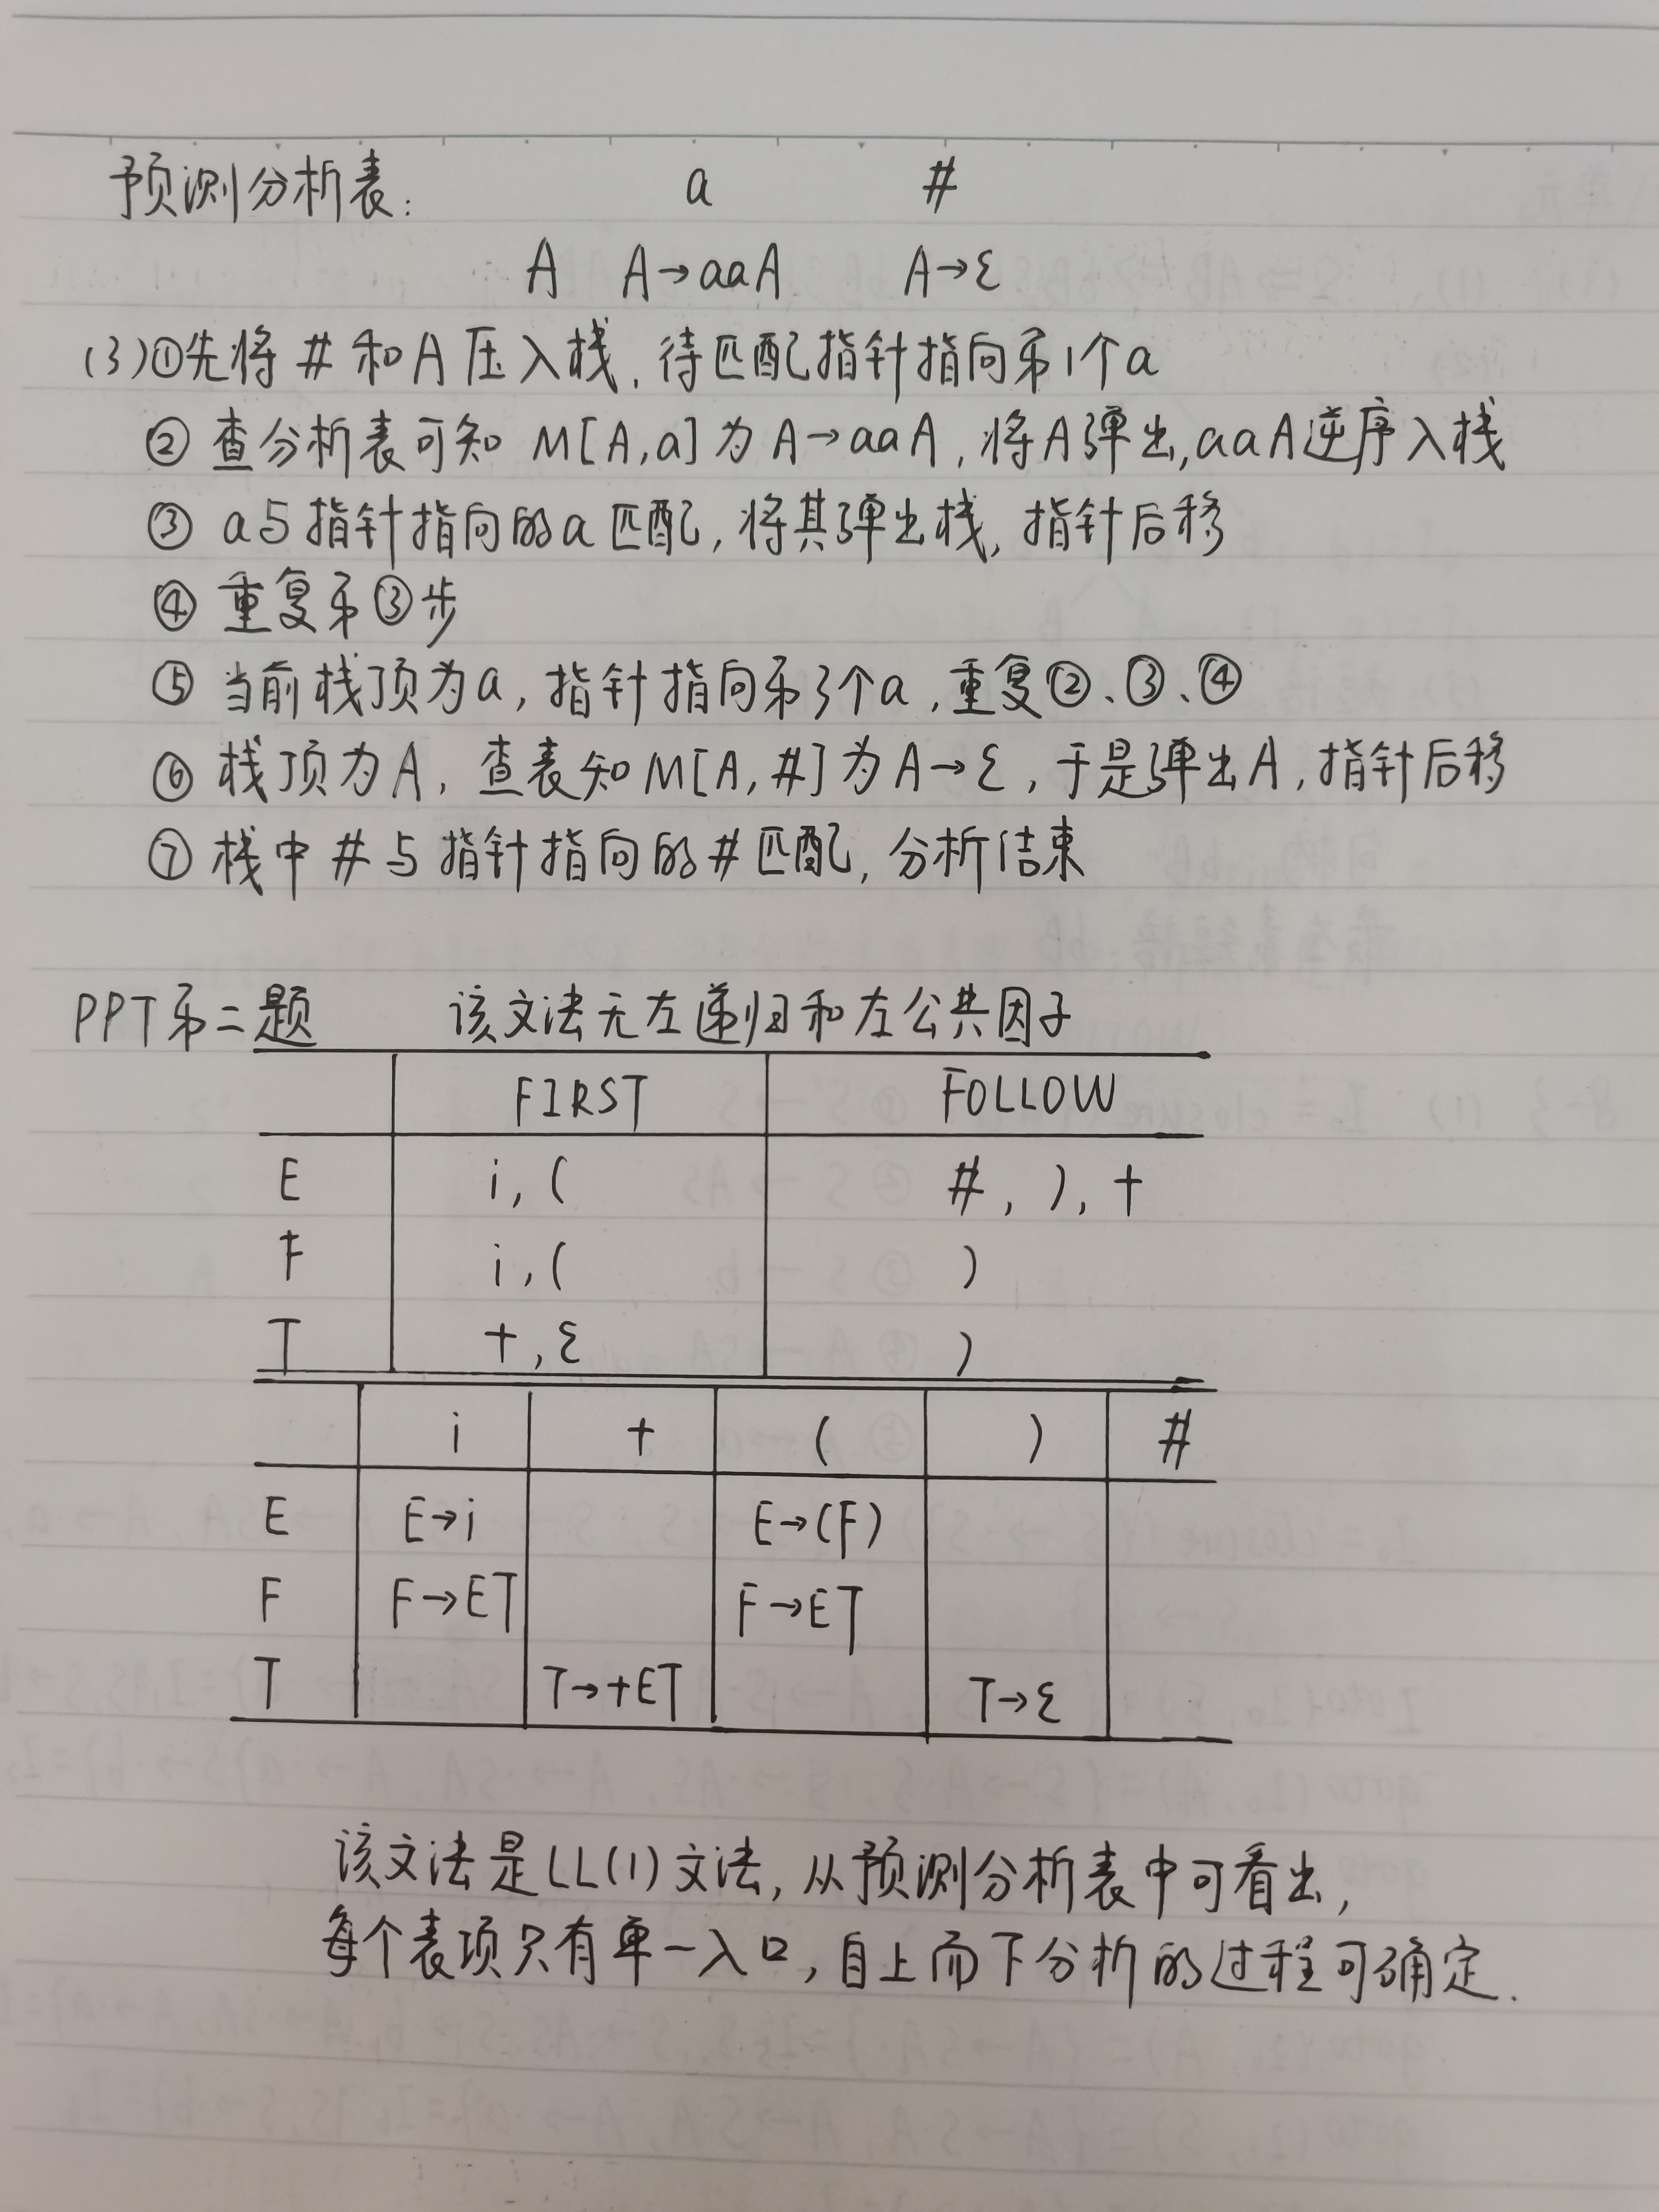 预测分析表: a #
A A→aaA A→ε
(3)①先将#和A压入栈,待匹配指针指向第1个a
② 查分析表可知 M[A,a]为A→aaA,将A弹出,aaA逆序入栈
③ a与指针指向的a匹配,将其弹出栈,指针后移
④ 重复第③步
⑤ 当前栈顶为a,指针指向第3个a,重复②、③、④
⑥ 栈顶为A,查表知M[A,#]为A→ε,于是弹出A,指针后移
⑦ 栈中#与指针指向的#匹配,分析结束
PPT第二题 该文法无左递归和左公共因子
FIRST FOLLOW
E i,( #,),+
F i,( )
T +,ε )
i + ( ) #
E E→i E→(F)
F F→ET F→ET
T T→+ET T→ε
该文法是LL(1)文法,从预测分析表中可看出,
每个表项只有单一入口,自上而下分析的过程可确定.